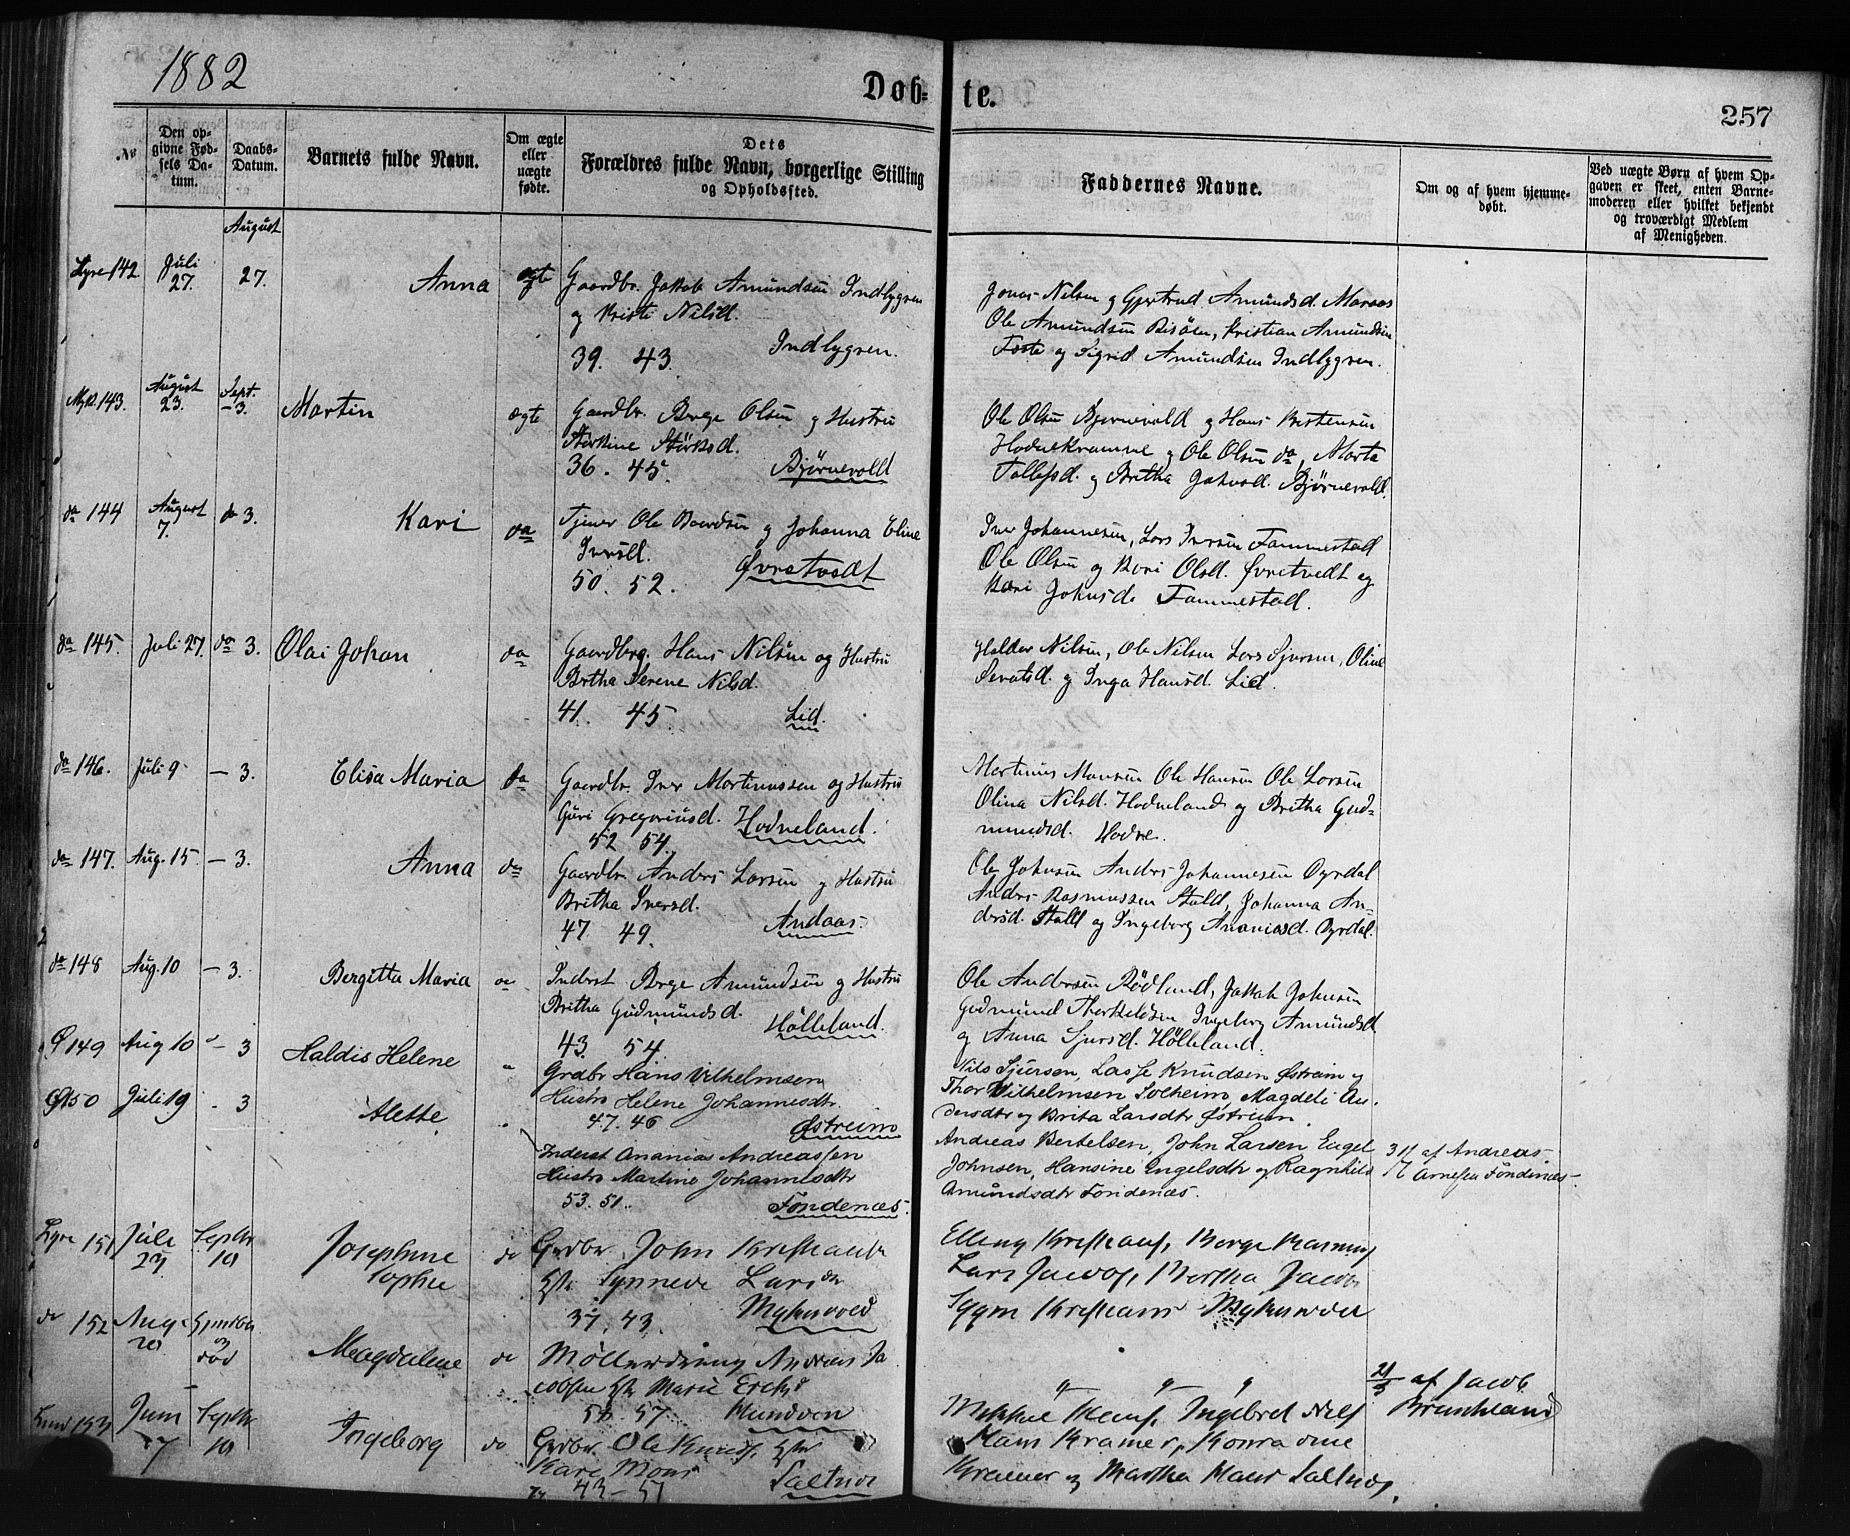 1882
Døb-te.
257
No
Den opgivne Fødsels Datum.
Daabs-Datum.
Barnets fulde Navn.
Om ægte eller uægte fødte.
Dets Forældres fulde Navn, borgerlige Stilling og Opholdssted.
Faddernes Navne.
Om og af hvem hjemmedøbt.
Ved uægte Børn af hvem Opgaven er skeet, enten Barnemoderen eller hvilket bekjendt og troværdigt Medlem af Menigheden.
August
Lyre 142 Juli 27. 27. Anna ægte Gaardbr. Jakob Amundsen Indbygren
og Kristi Nilsd.
39. 43. Indbygren.
Jonas Nilsen og Gjertrud Amundsd Maraas
Ole Amundsen Risøen, Kristian Amundsen
Foste og Sigrid Amundsen Indbygren.
Myk. 143. August 23. Sept. - 3. Martin ægte Gaardbr. Berge Olsen og Hustru
Sterkine Størksd.
36. 45. Bjørnevold
Ole Olsen Bjørnevold og Hans Kristensen
Hodnekramme og Ole Olsen do, Marta
Tollefsd. og Britha Johnsd. Bjørnevold.
do 144 August 7. do 3. Kari do Tjener Ole Baardsen og Johanna Eline
Iversd.
50. 52. Øvretvedt
Iver Johannesen, Lars Iversen Fammestad
Ole Olsen og Kari Olsd. Øvretvedt og
Kari Johnsd. Fammestad.
do 145. Juli 27. do 3. Olai Johan do Gaardbrg. Hans Nilsen og Hustru
Brtha Serene Nilsd.
41. 45. Lid.
Haldor Nilsen, Ole Nilsen Lars Sjursen, Oline
Sevatsd. og Inga Hansd. Lid.
do 146. Juli 9. - 3. Elisa Maria do Gaardbr. Iver Martinussen og Hustru
Guri Gregoriusd. Hodneland.
52 54.
Martinus Monsen Ole Hansen Ole Larsen
Olina Nilsd. Hodneland og Britha Gud-
mundsd. Hodne.
do 147. Aug. 15. - 3. Anna do Gaardbr. Anders Larsen og Hustru
Britha Iversd.
47 49. Andaas.
Ole Johnsen Anders Johannesen Dyrdal
Anders Rasmussen Stald, Johanna An-
dersd. Stald og Ingeborg Ananiasd. Dyrdal.
do 148 Aug. 10 - 3. Bergitta Maria do Inderst Berge Amundsen og Hustru
Britha Gudmundsd.
43. 54. Hølleland.
Ole Andersen Rødland, Jakob Johnsen
Gudmund Therkildsen, Ingeborg Amundsd
og Anna Sjursd. Hølleland.
Ø 149 Aug 10 - 3 Haldis Helene " Grdbr Hans Vilhelmsen
Hustro Helene Johannesdtr.
47. 46 Østreim
Nils Sjursen, Lasse Knudsen Østreim og
Thor Vilhelmsen Solheim, Magdeli An-
dersdtr og Brita Larsdtr Østreim.
Ø 150 Juli 19 - 3 Alette " Inderst Ananias Andreassen
Hustro Martine Johannesdtr
53. 51. Fondenæs.
Andreas Bertelsen, John Larsen Engel
Johnsen, Hansine Engelsdtr og Ragnhild
Amundsdtr Fondenæs.
3/7 af Andreas
Arnesen Fondenæs.
Lyre 151 Juli 23 Septbr 10 Josephine
Sophie do Grdbr. John Kristians
Hst. Synneve Larsdtr
37. 43. Mykevold
Elling Kristians, Berge Rasmus
Lars Jacobs, Martha Jacobs
Kristians
do 152 Aug. 20 død Magdalene do Møllerdreng Andreas Ja
cobsen Hst. Marie Ericks
57. Mundven
" " "
21/8 af Jacob
Lind 153 Juni 7 Septbr 10 Ingeborg do Grdbr. Ole Knuds, Hst
Kari Mons
43 - 51 Saltnes
Ingebret Nils
Hans Kramer, Konradine
Kramer og Martha Hans Saltnes.